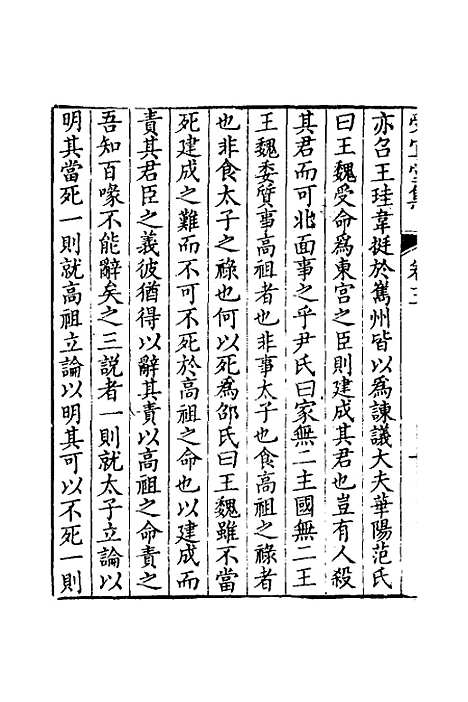 亦召王珪韋挺於巂州皆以爲諫議大夫華陽范氏
曰王魏受命爲東宮之臣則建成其君也豈有人殺
其君而可北面事之乎尹氏曰家無二主國無二王
王魏委質事高祖者也非事太子也食高祖之祿者
也非食太子之祿也何以死爲邵氏曰王魏雖不當
死建成之難而不可不死於高祖之命也以建成而
責其君臣之義彼猶得以辭其責以高祖之命責之
吾知百喙不能辭矣之三説者一則就太子立論以
明其當死一則就高祖立論以明其可以不死一則